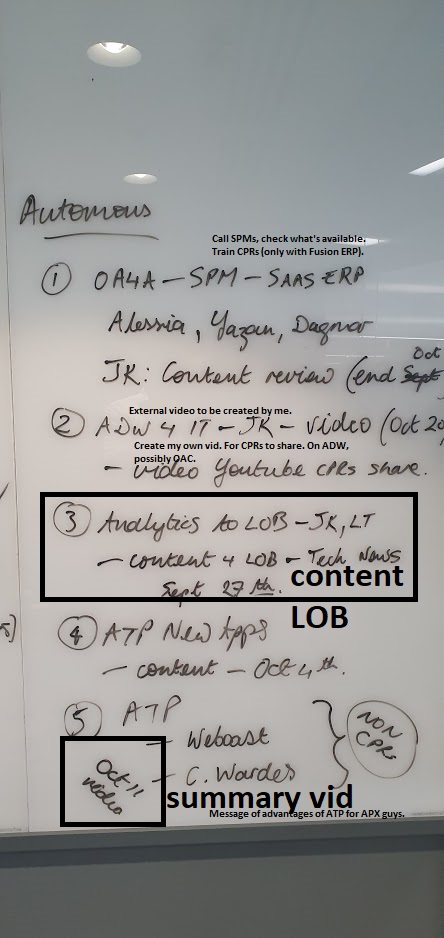 Automous
Call SPMs, check what's available.
Train CPRs (only with Fusion ERP).
① OA4A - SPM - SAAS ERP
Alessia, Yazan, Dagmar
Oct
JK: Content review (end Sept
External video to be created by me.
② ADW 4 IT - JK - video (Oct 20
Create my own vid. For CPRs to share. On ADW,
possibly OAC.
- video Youtube CPRs share.
③ Analytics to LOB - JK, LT
- content 4 LOB - Tech News
Sept 27th.
content
LOB
④ ATP New Apps
- content - Oct 4th.
⑤ ATP
- Webcast
- C. Wardes
NON
CPRs
Oct 11
video
summary vid
Message of advantages of ATP for APX guys.